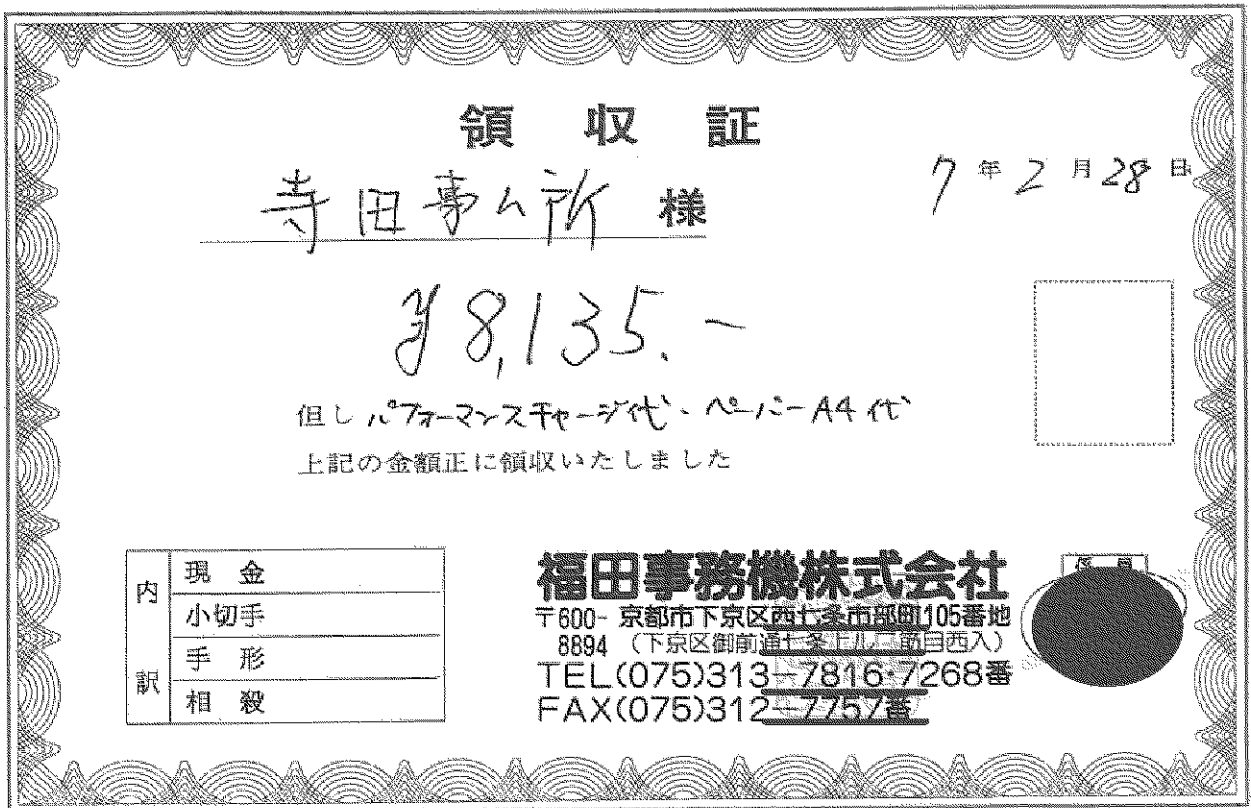 領収証
7年2月28日
寺田事ム所 様
¥8,135.-
但し パフォーマンスチャージ代・ペーパーA4代
上記の金額正に領収いたしました
内訳
現金
小切手
手形
相殺
福田事務機株式会社
〒600-8894 京都市下京区西七条市部町105番地
(下京区御前通七条上ル二筋目西入)
TEL(075)313-7816・7268番
FAX(075)312-7757番
係員